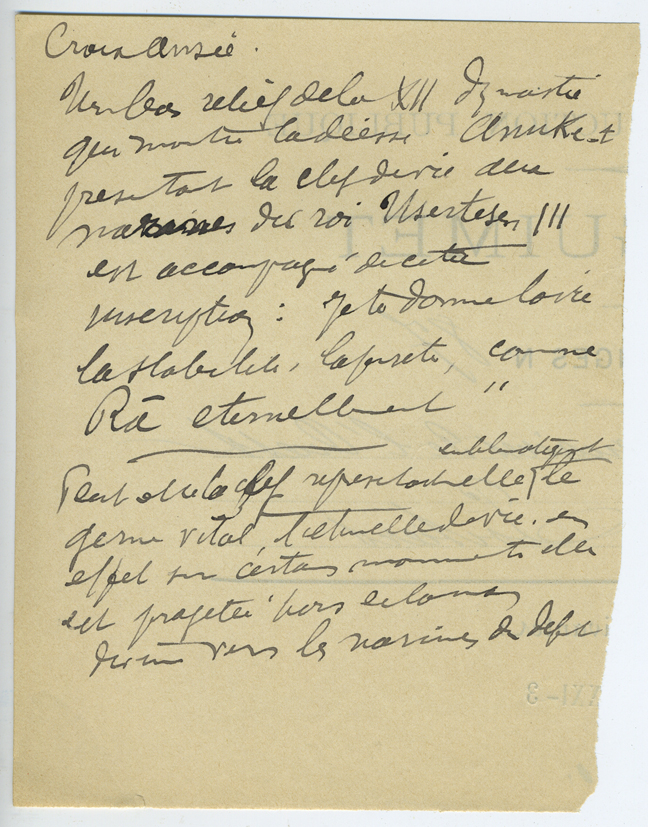 Croix Ansée.
Un bas relief de la XII Dynastie
qui montre la déesse Anuke-t
présentant la clef de vie aux
narines du roi Usertesen III
est accompagné de cette
inscription : je te donne la vie
la stabilité, la pureté, comme
Râ eternellement "
emblématiquement
Peut etre la clef représentait elle le
germe vital de vie. en
effet sur certains monuments elle
est projetée hors de la main
divine vers les narines du def
GUIMET